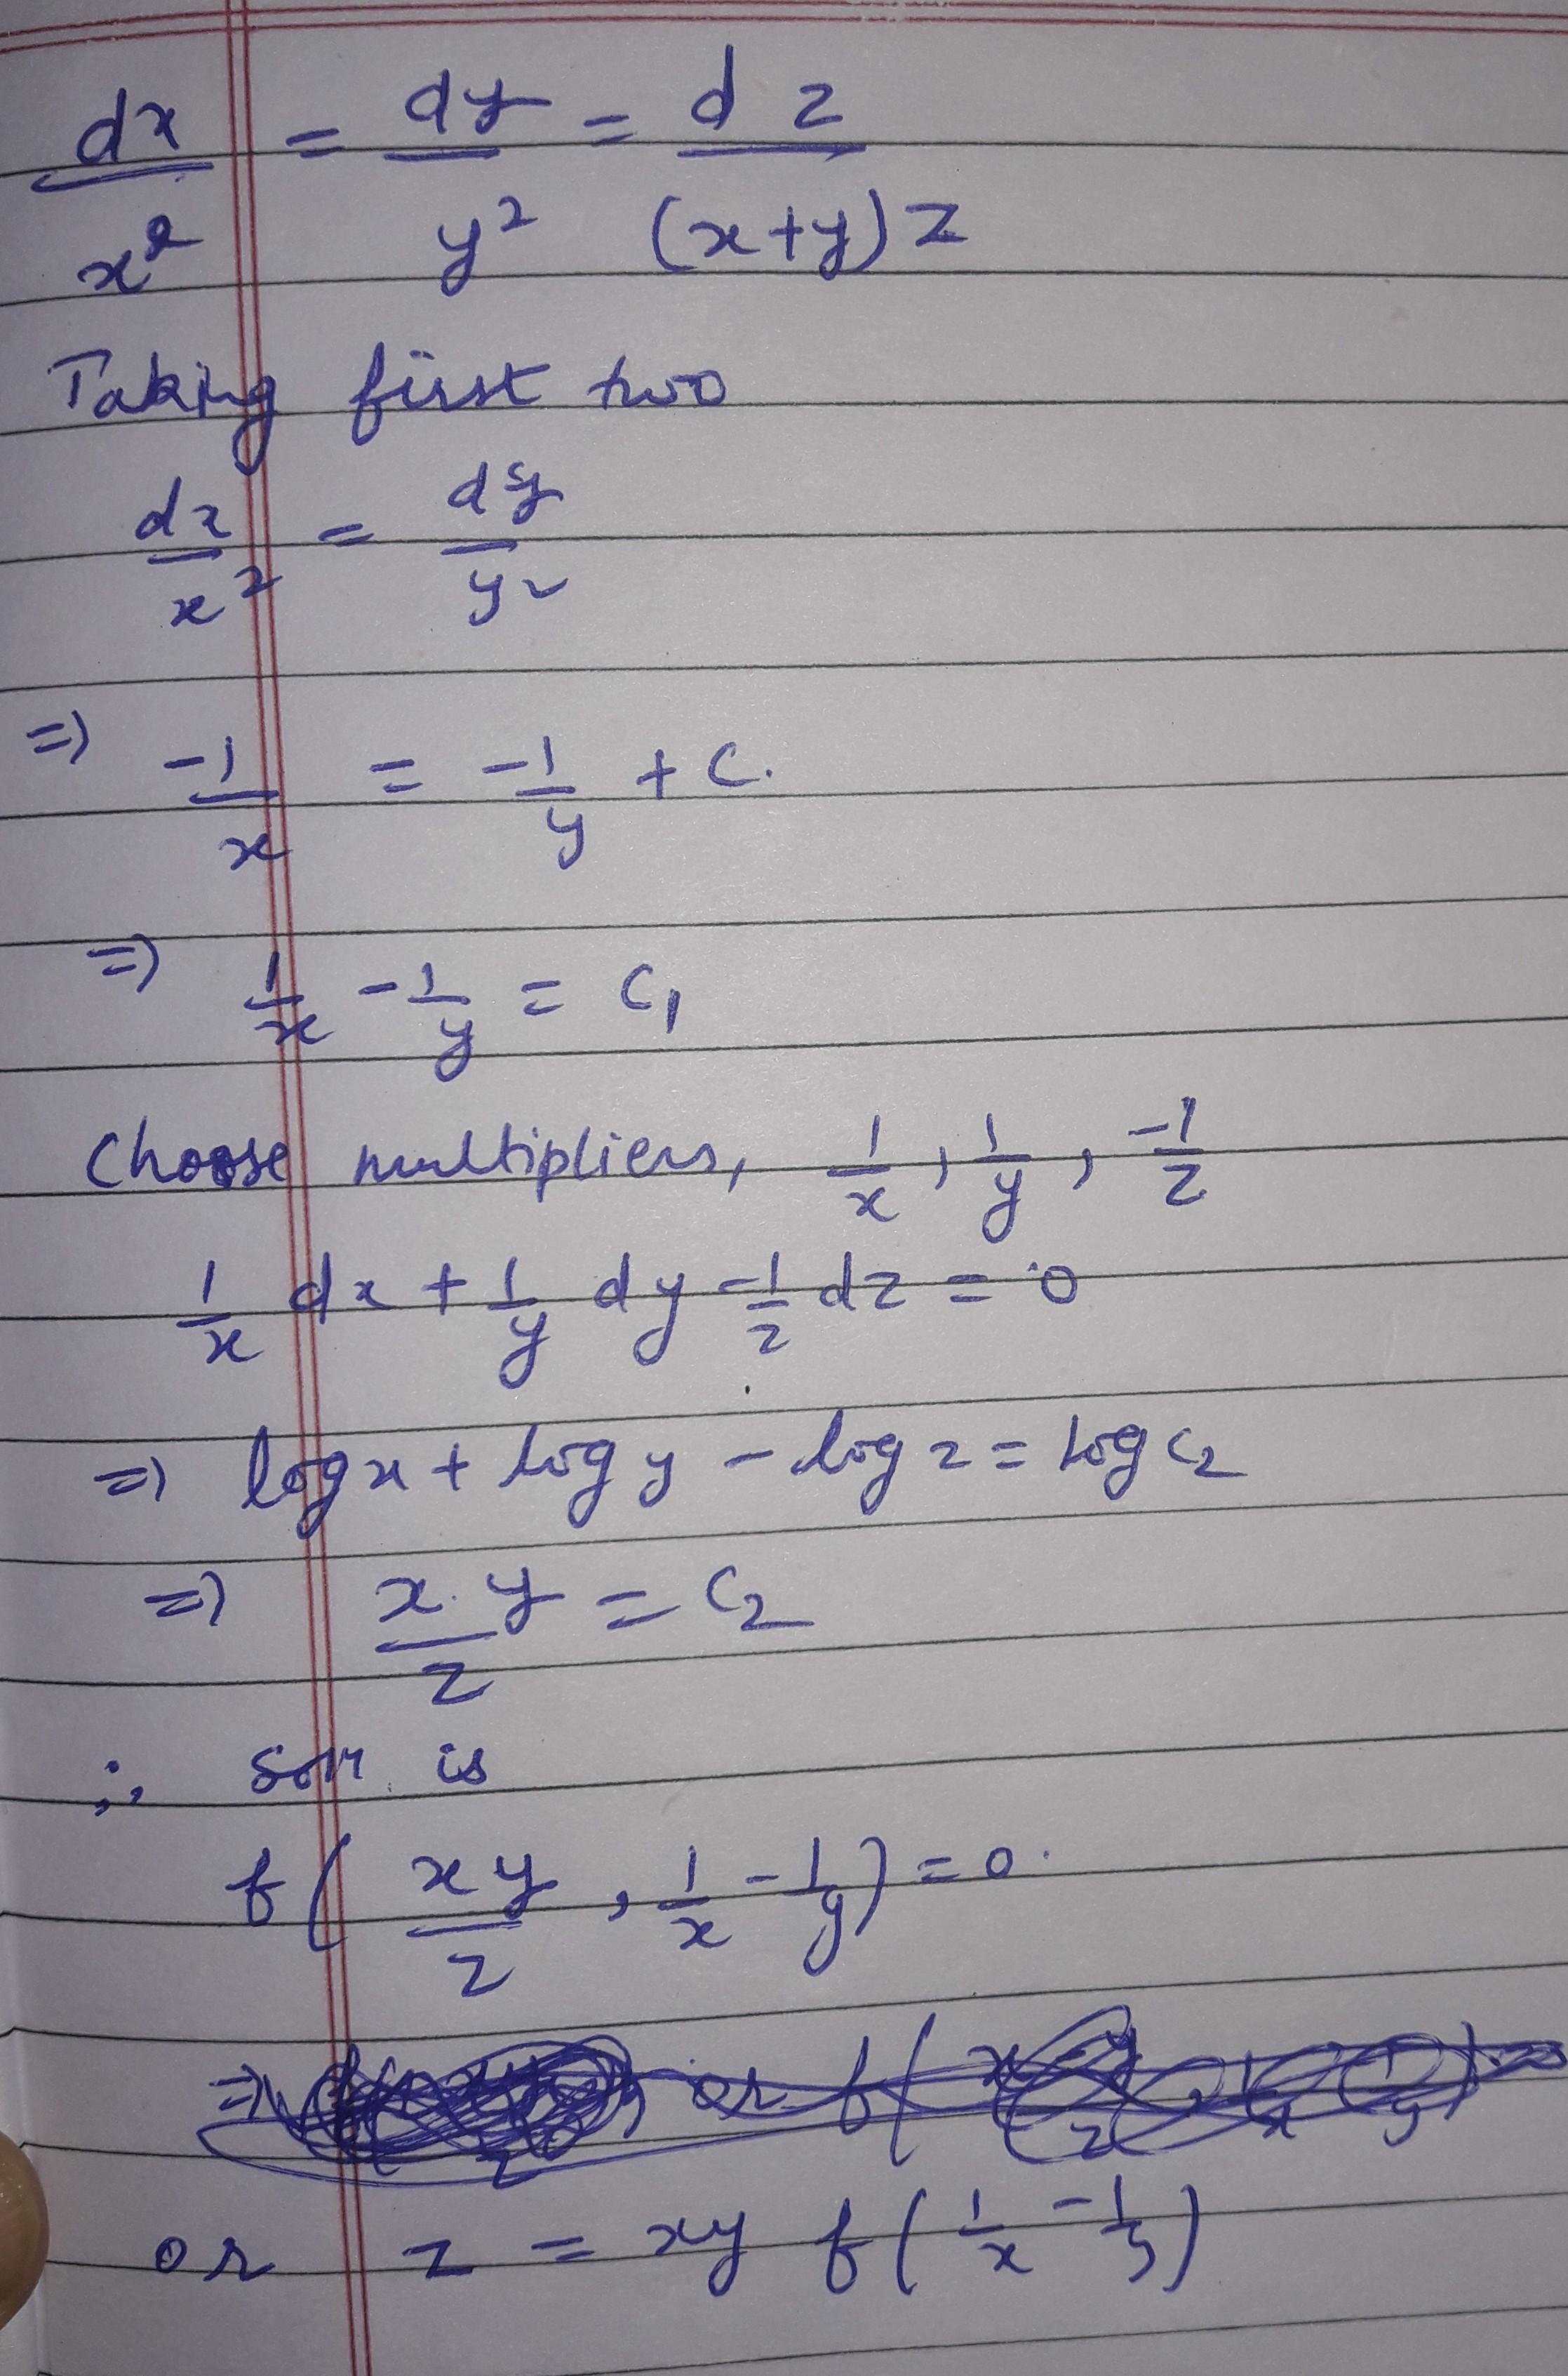 dx/x² = dy/y² = dz/(x+y)z
Taking first two
dx/x² = dy/y²
=) -1/x = -1/y + C.
=) 1/x - 1/y = C₁
Choose multipliers, 1/x, 1/y, -1/z
1/x dx + 1/y dy - 1/z dz = 0
=) log x + log y - log z = log C₂
=) x.y/z = C₂
∴ soln. is
f(xy/z, 1/x - 1/y) = 0.
or z = xy f(1/x - 1/y)